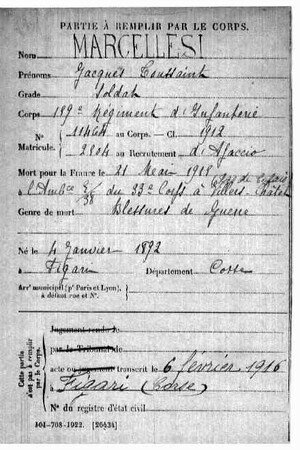 PARTIE À REMPLIR PAR LE CORPS.
Nom MARCELLESI
Prénoms Jacques Toussaint
Grade Soldat
Corps 189e Régiment d'Infanterie
N° 11464 au Corps. — Cl. 1912
Matricule. 2804 au Recrutement d'Ajaccio
Mort pour la France le 21 Mai 1915
à l'Ambce du 33e Corps à Villers Châtel
Pas de Calais
Genre de mort Blessures de Guerre
Né le 4 Janvier 1892
à Figari Département Corse
Arrt municipal (pr Paris et Lyon),
à défaut rue et N°.
Cette partie
n'est pas à remplir
par le Corps.
Jugement rendu le
par le Tribunal de
acte ou jugement transcrit le 6 février 1916
à Figari (Corse)
N° du registre d'état civil
101-708-1922. [26434]